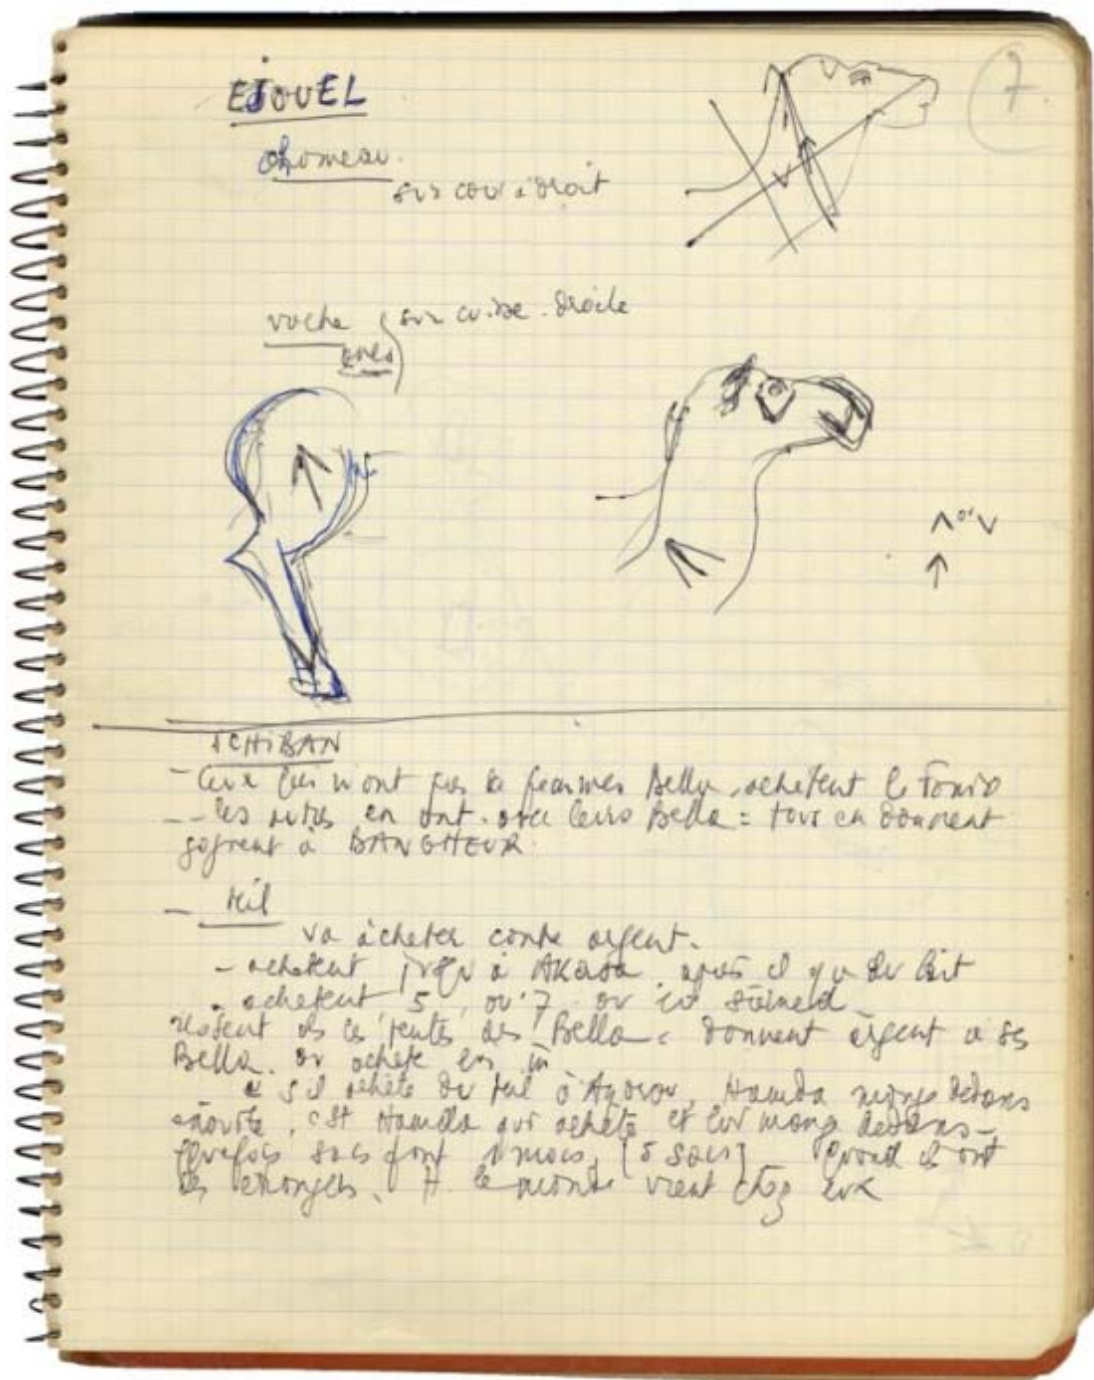 7
EJOUEL
chameau
sur cou à droit
vache
anes
sur cuisse droite
Λ ou V
↑
ICHIBAN
- Ceux qui n'ont pas de femmes Bella achetent le Fonio
-- les autres en ont avec leurs Bella = tous en donnent
à BANGHEUR
- Mil
va acheter contre argent.
- achetent à AKASA après il y a du lait
- achetent 5, ou 7 ou 10
Bella = donnent argent a
Bella on achete
s'il achète du mil à Ayorou, Hamda mange dedans
ensuite, c'est Hamda qui achète et lui mange dedans -
sacs font 1 mois, [5 sacs] quand ils ont
des étrangers. le monde vient chez eux